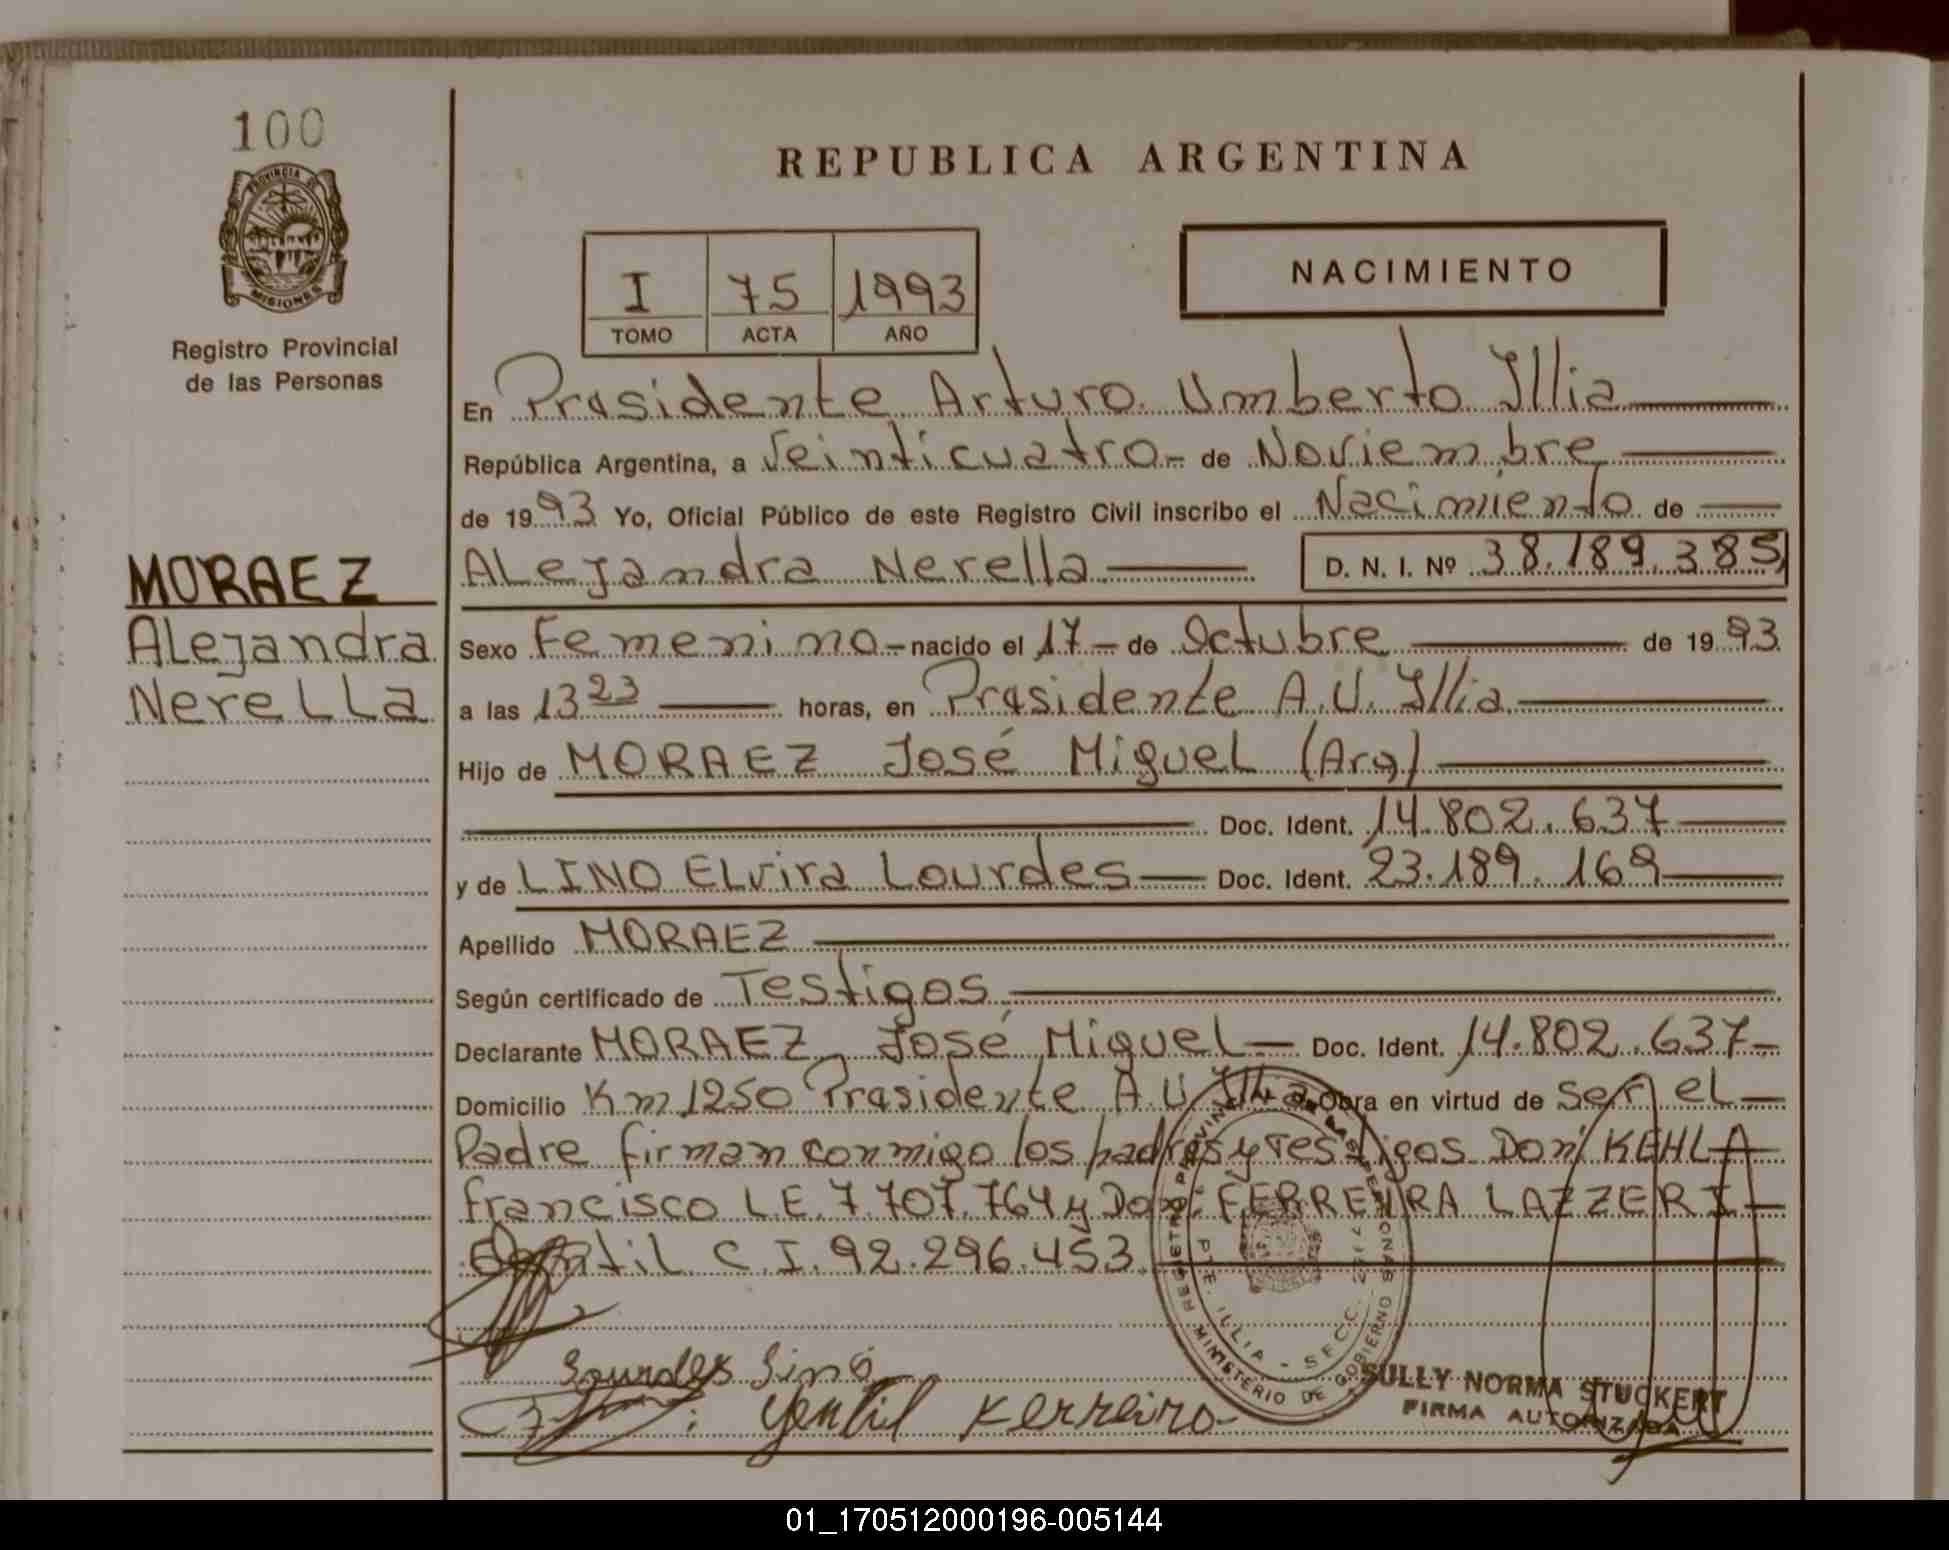 100
PROVINCIA DE
MISIONES
Registro Provincial
de las Personas
MORAEZ
Alejandra
Nerella
REPUBLICA ARGENTINA
I 75 1993
TOMO ACTA AÑO
NACIMIENTO
En Presidente Arturo Umberto Illia
República Argentina, a Veinticuatro de Noviembre
de 1993 Yo, Oficial Público de este Registro Civil inscribo el Nacimiento de
Alejandra Nerella D. N. I. Nº 38.189.385
Sexo Femenino nacido el 17 de Octubre de 1993
a las 13 23 horas, en Presidente A.U. Illia
Hijo de MORAEZ José Miguel (Arg)
Doc. Ident. 14.802.637
y de LINO Elvira Lourdes Doc. Ident. 23.189.169
Apellido MORAEZ
Según certificado de Testigos
Declarante MORAEZ José Miguel Doc. Ident. 14.802.637
Domicilio Km 1250 Presidente A.U Illia Obra en virtud de ser el
Padre firman conmigo los padres y Testigos Don KEHLA
Francisco L.E. 7.707.764 y Don FERREIRA LAZZERI
C.I. 92.296.453
Lourdes Lino
Gentil Ferreira
REGISTRO PROVINCIAL DE LAS PERSONAS
MINISTERIO DE GOBIERNO
PTE. ILLIA - SECC.
SULLY NORMA STUCKERT
FIRMA AUTORIZADA
01_170512000196-005144